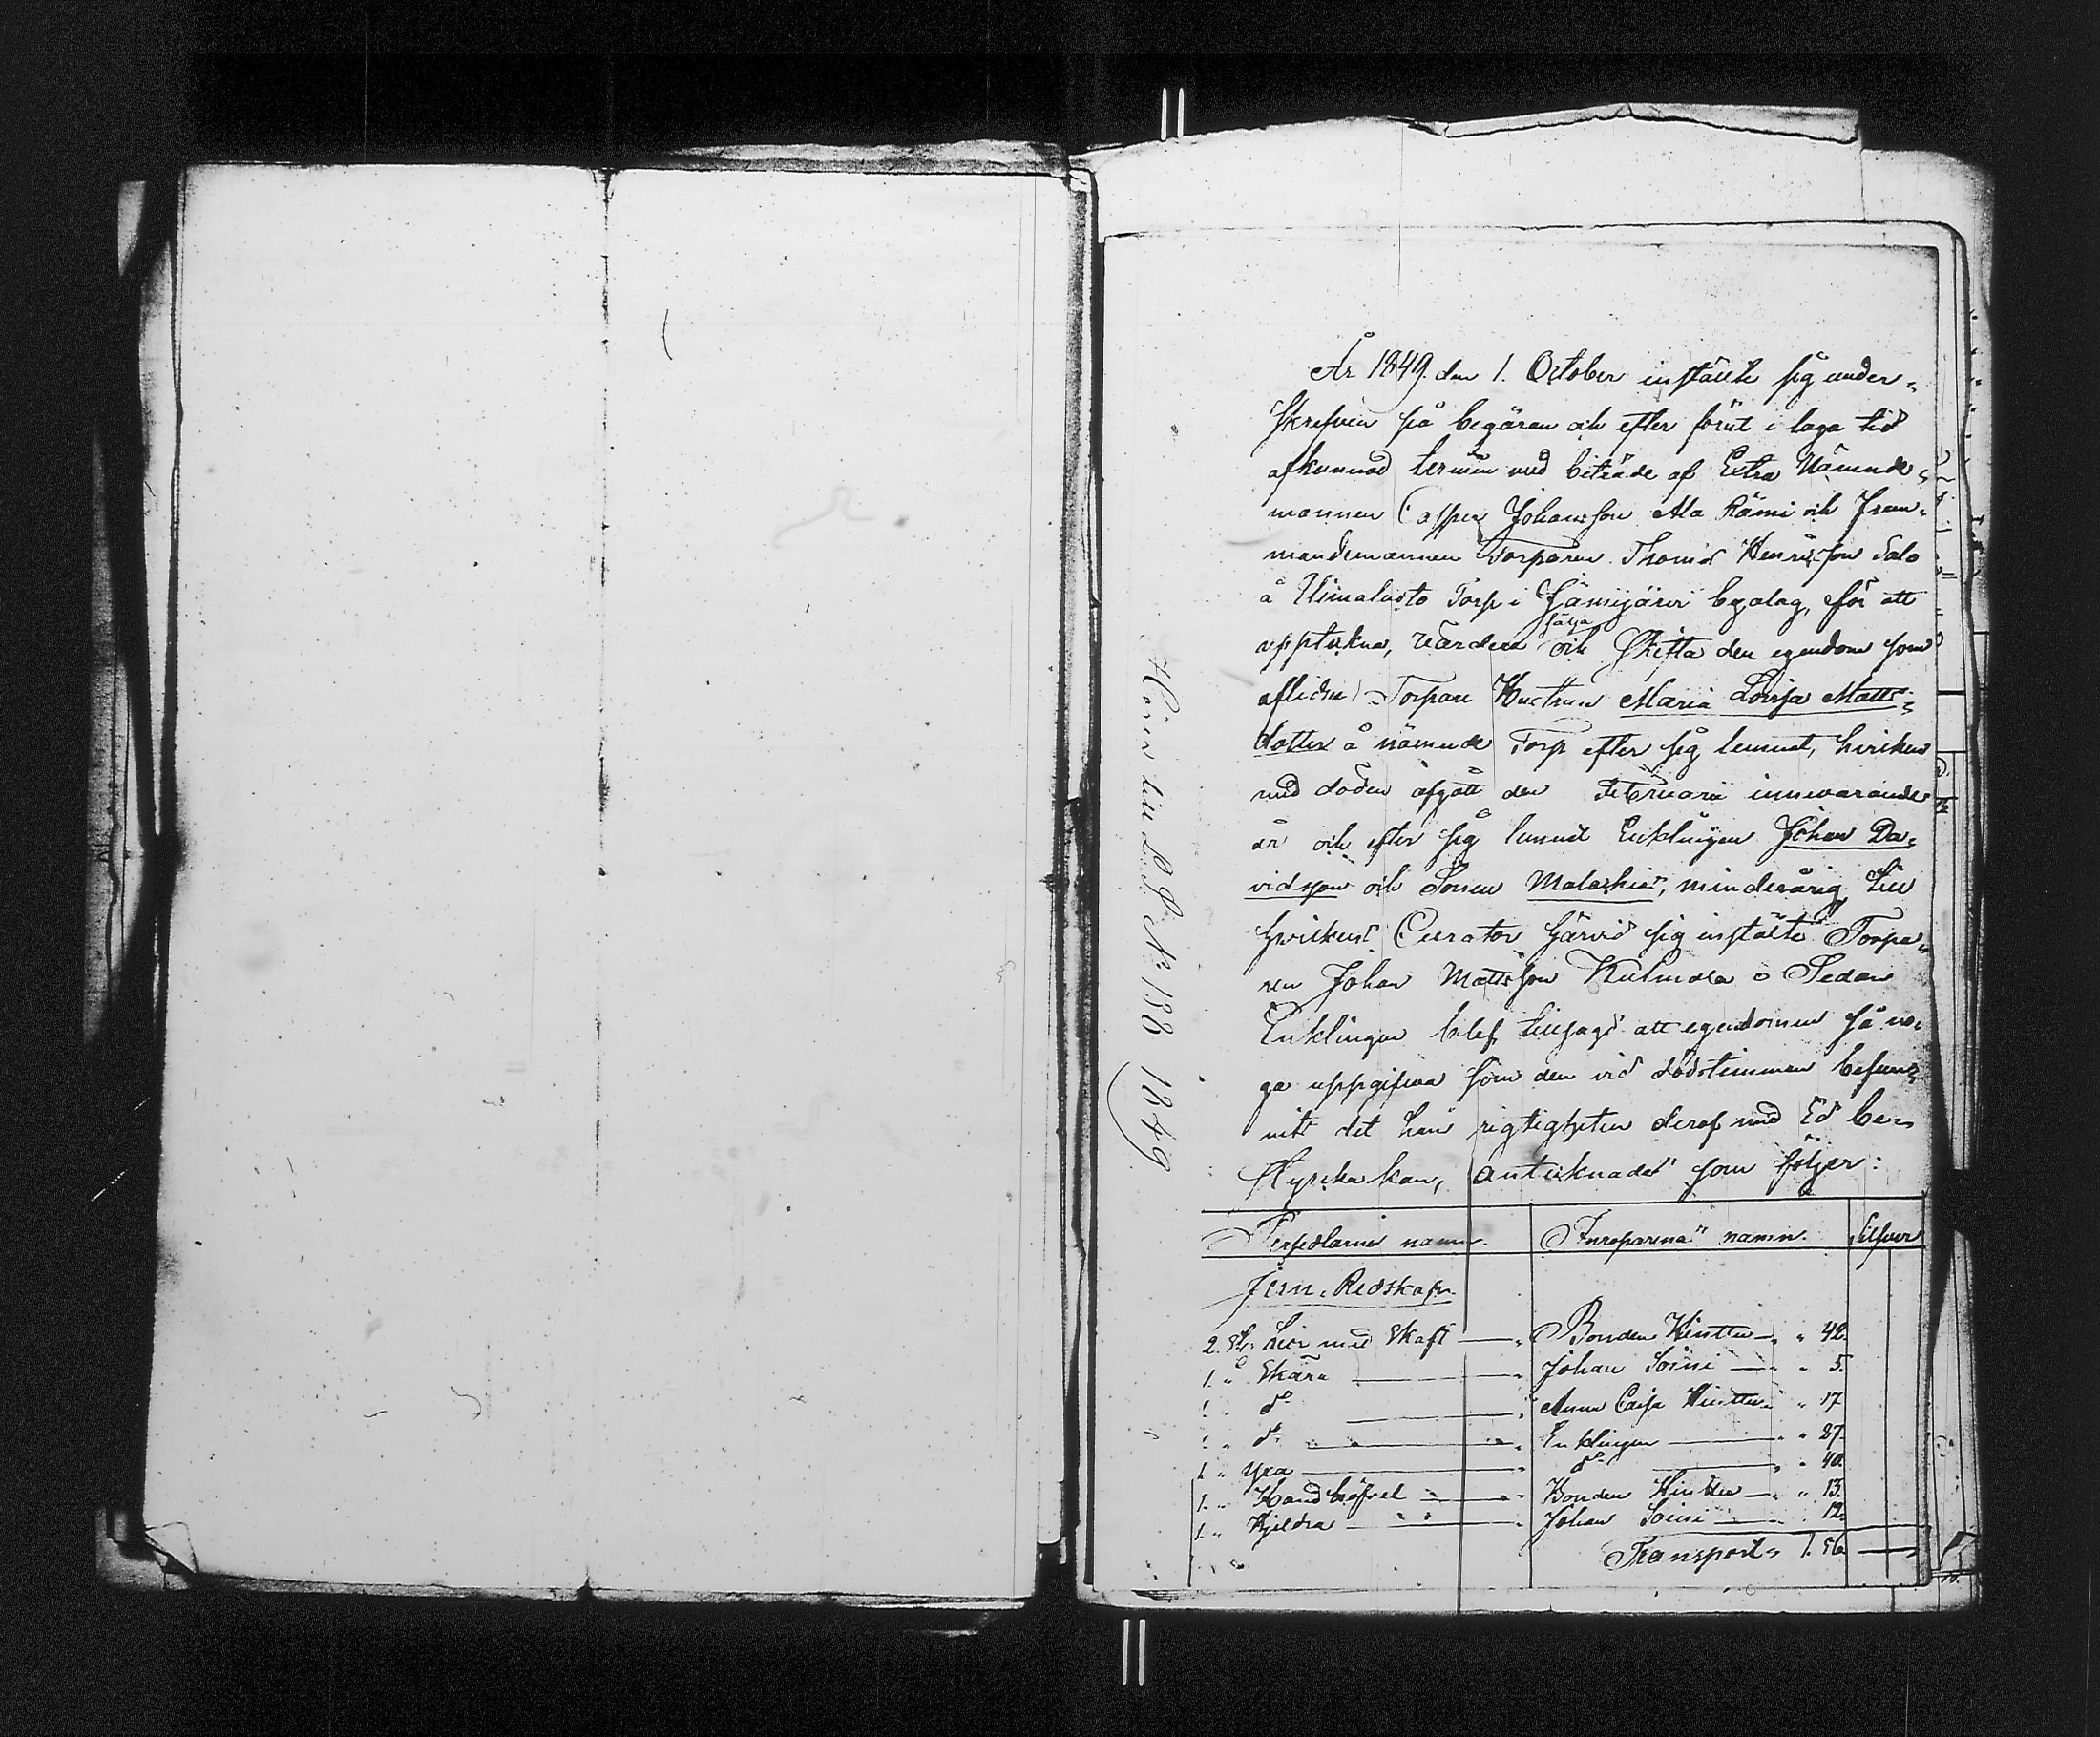 År 1849. den 1. October instälte sig under-
skrefven på begäran och efter förut i laga tid
afkunnad termin med biträde af Extra Nämnde-
mannen Casper Johansson Ala Rämi och Främ-
mandemannen Torparen Thomas Henricsson Salo
å Uimaluoto Torp i Jämijärvi byalag, för att
upptekna, värdera sälja och Skifta den egendom som
aflidne Torpare Hustrun Maria Lovisa Matts-
dotter å nämnde Torp efter sig lemnat, hvilken
med döden afgått den Februarii innevarande
år och efter sig lemnat Enklingen Johan Da-
vidsson och Sonen Malachias, minderårig, till
hvilkens Curator härvid sig instälte Torpa-
ren Johan Mattsson Sedan
Enklingen blef tillsagd att egendomen så no-
ga uppgifva som den vid dödstimman befun-
nits det han rigtigheten deraf med Ed be-
styrcka kan, antecknades som följer:
Persedlarnes namn. Inroparenas namn. Silfver
Jern-Redskap.
2. St. Liar med Skaft — Bonden Hinttu — " 42.
1. " Skära — Johan Soini — " 5.
1. " do — Anna Caisa Hinttu " 17
1. " do — Enklingen — " 27.
1. " Yxa — do — " 40.
1. " Handhöfvel — Bonden Hinttu — " 13.
1. " — Johan Soini — 12.
Transport 1. 56 —
Hörer till L. S. No 138 1849